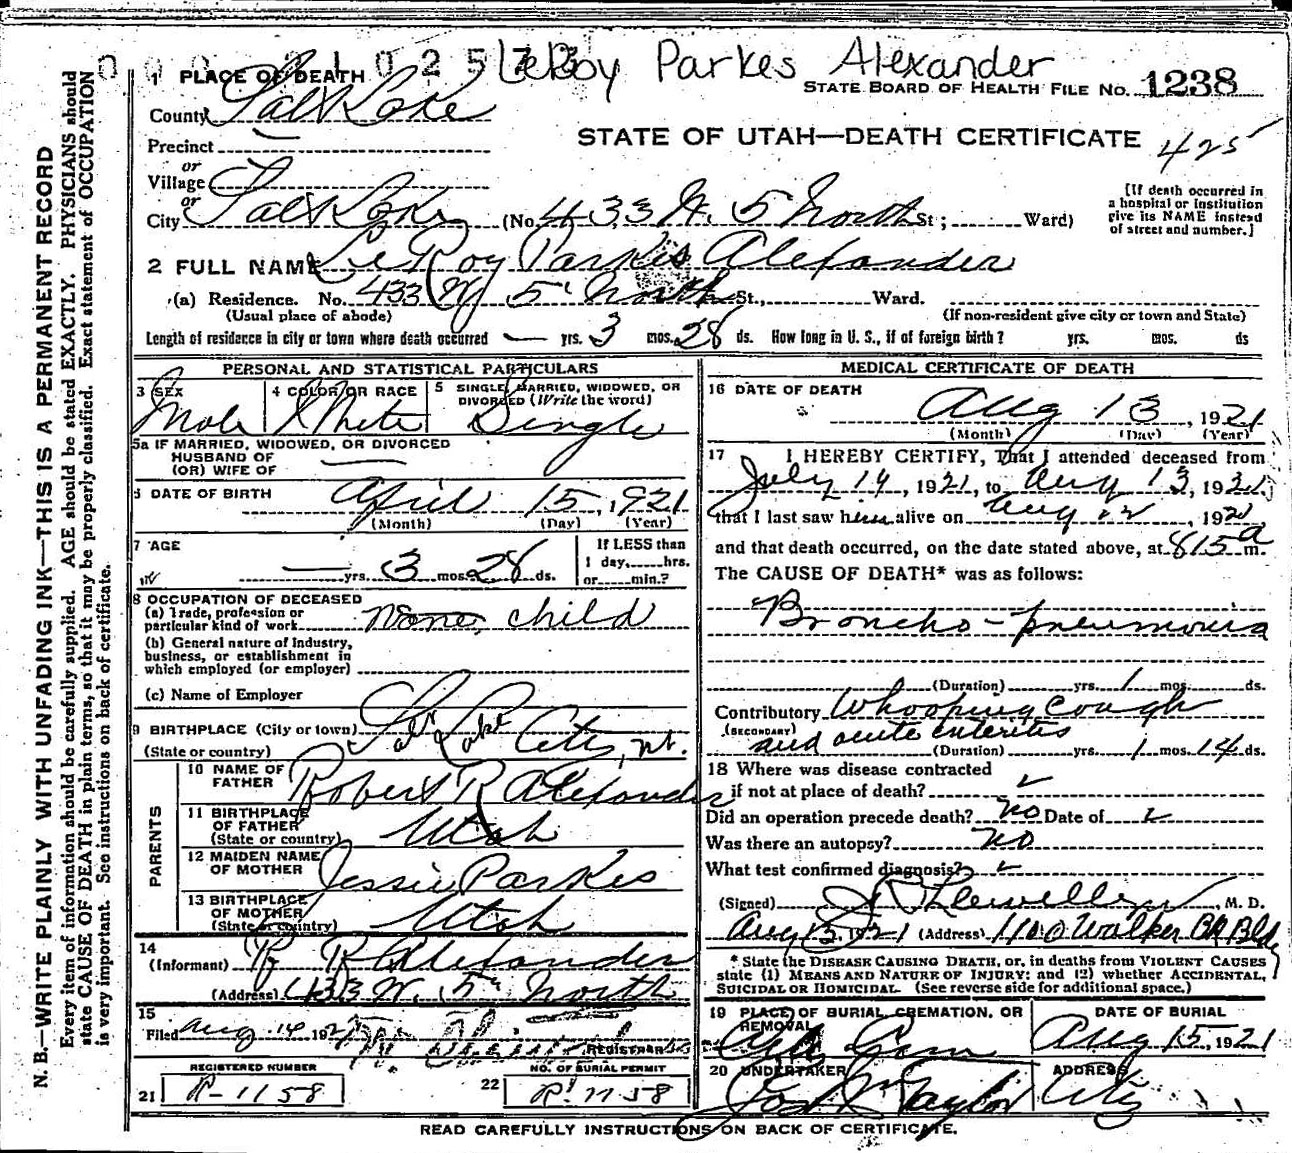 LeRoy Parkes Alexander
1 PLACE OF DEATH
STATE BOARD OF HEALTH FILE NO. 1238
County Salt Lake
STATE OF UTAH—DEATH CERTIFICATE
425
Precinct
or
Village
or
City Salt Lake (No. 433 W. 5 North St; Ward)
[If death occurred in
a hospital or institution
give its NAME instead
of street and number.]
2 FULL NAME LeRoy Parkes Alexander
(a) Residence. No. 433 W 5 North St., Ward.
(Usual place of abode) (If non-resident give city or town and State)
Length of residence in city or town where death occurred — yrs. 3 mos. 28 ds. How long in U. S., if of foreign birth? yrs. mos. ds
PERSONAL AND STATISTICAL PARTICULARS
3 SEX Male
4 COLOR OR RACE White
5 SINGLE, MARRIED, WIDOWED, OR
DIVORCED (Write the word) Single
5a IF MARRIED, WIDOWED, OR DIVORCED
HUSBAND OF
(OR) WIFE OF —
6 DATE OF BIRTH April 15, 1921
(Month) (Day) (Year)
7 AGE
— yrs. 3 mos. 28 ds.
If LESS than
1 day, hrs.
or min.?
8 OCCUPATION OF DECEASED
(a) Trade, profession or
particular kind of work None, child
(b) General nature of Industry,
business, or establishment in
which employed (or employer)
(c) Name of Employer
9 BIRTHPLACE (City or town) Salt Lake City, Ut.
(State or country)
PARENTS
10 NAME OF
FATHER Robert R Alexander
11 BIRTHPLACE
OF FATHER
(State or country) Utah
12 MAIDEN NAME
OF MOTHER Jessie Parkes
13 BIRTHPLACE
OF MOTHER
(State or country) Utah
14
(Informant) R R Alexander
(Address) 433 W. 5th North
15
Filed Aug 14, 192
REGISTRAR
REGISTERED NUMBER
21 R-1158
NO. OF BURIAL PERMIT
22 R-1158
MEDICAL CERTIFICATE OF DEATH
16 DATE OF DEATH
Aug 13, 1921
(Month) (Day) (Year)
17 I HEREBY CERTIFY, That I attended deceased from
July 14, 1921, to Aug 13, 1921,
that I last saw him alive on Aug 12, 1921
and that death occurred, on the date stated above, at 815 a m.
The CAUSE OF DEATH* was as follows:
Broncho-pneumonia
(Duration) yrs. 1 mos. ds.
Contributory Whooping Cough
(SECONDARY)
and acute enteritis (Duration) yrs. 1 mos. 14 ds.
18 Where was disease contracted
if not at place of death?
Did an operation precede death? no Date of
Was there an autopsy? no
What test confirmed diagnosis?
(Signed) Llewellyn, M. D.
Aug 13, 1921 (Address) 1100 Walker Bk Bldg
* State the DISEASE CAUSING DEATH, or, in deaths from VIOLENT CAUSES
state (1) MEANS AND NATURE OF INJURY; and (2) whether ACCIDENTAL,
SUICIDAL OR HOMICIDAL. (See reverse side for additional space.)
19 PLACE OF BURIAL, CREMATION, OR
REMOVAL
City Cem
DATE OF BURIAL
Aug 15, 1921
20 UNDERTAKER
Jos Wm Taylor
ADDRESS
City
READ CAREFULLY INSTRUCTIONS ON BACK OF CERTIFICATE.
N. B.—WRITE PLAINLY WITH UNFADING INK—THIS IS A PERMANENT RECORD
Every item of information should be carefully supplied. AGE should be stated EXACTLY. PHYSICIANS should
state CAUSE OF DEATH in plain terms, so that it may be properly classified. Exact statement of OCCUPATION
is very important. See instructions on back of certificate.